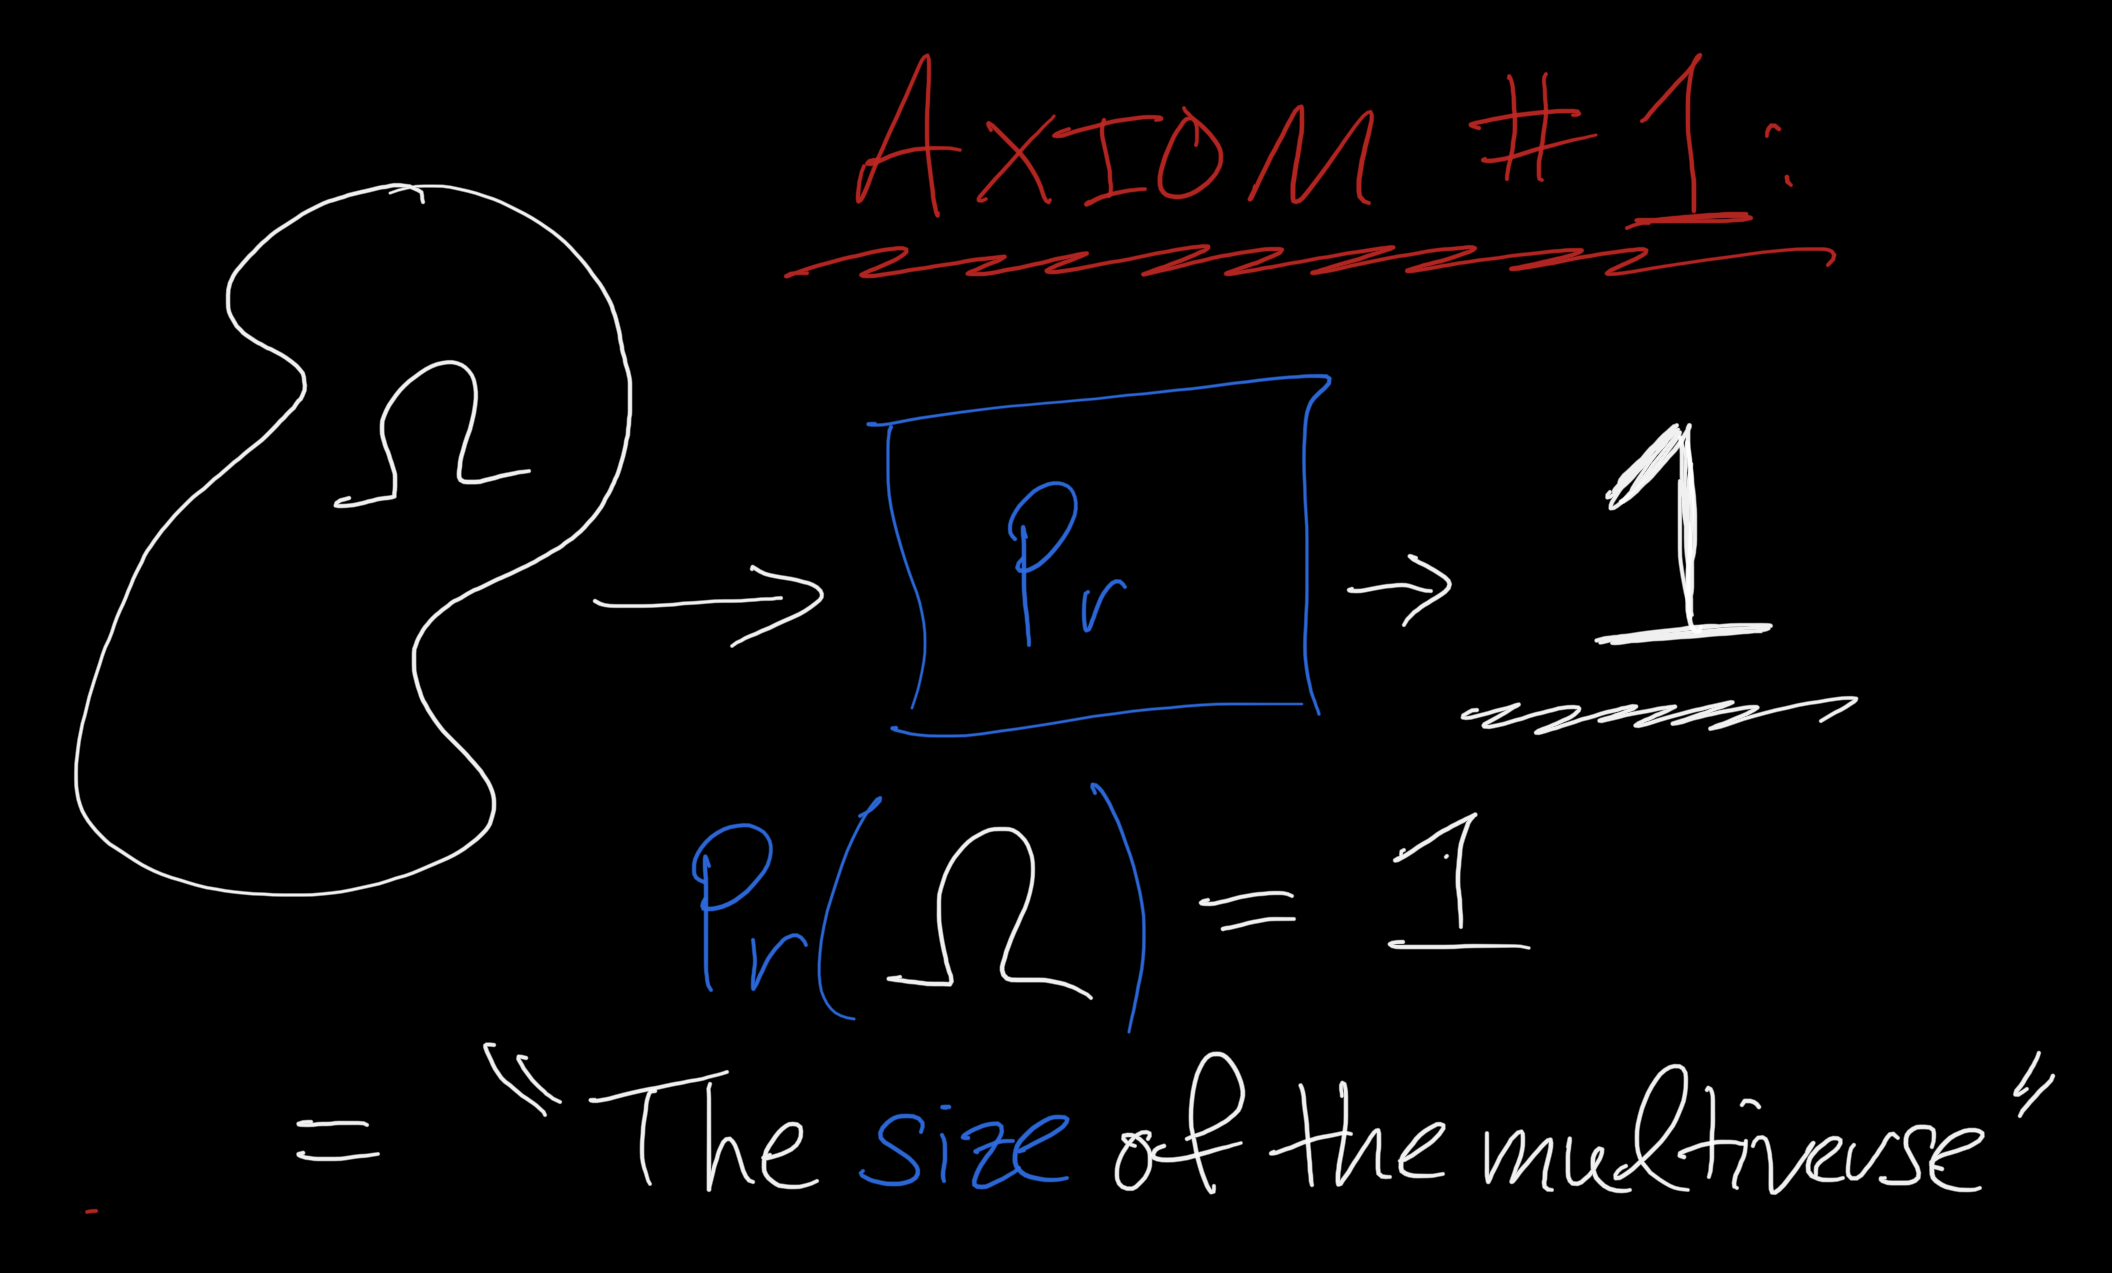 AXIOM #1:
Ω → Pr → 1
Pr(Ω) = 1
= "The size of the multiverse"